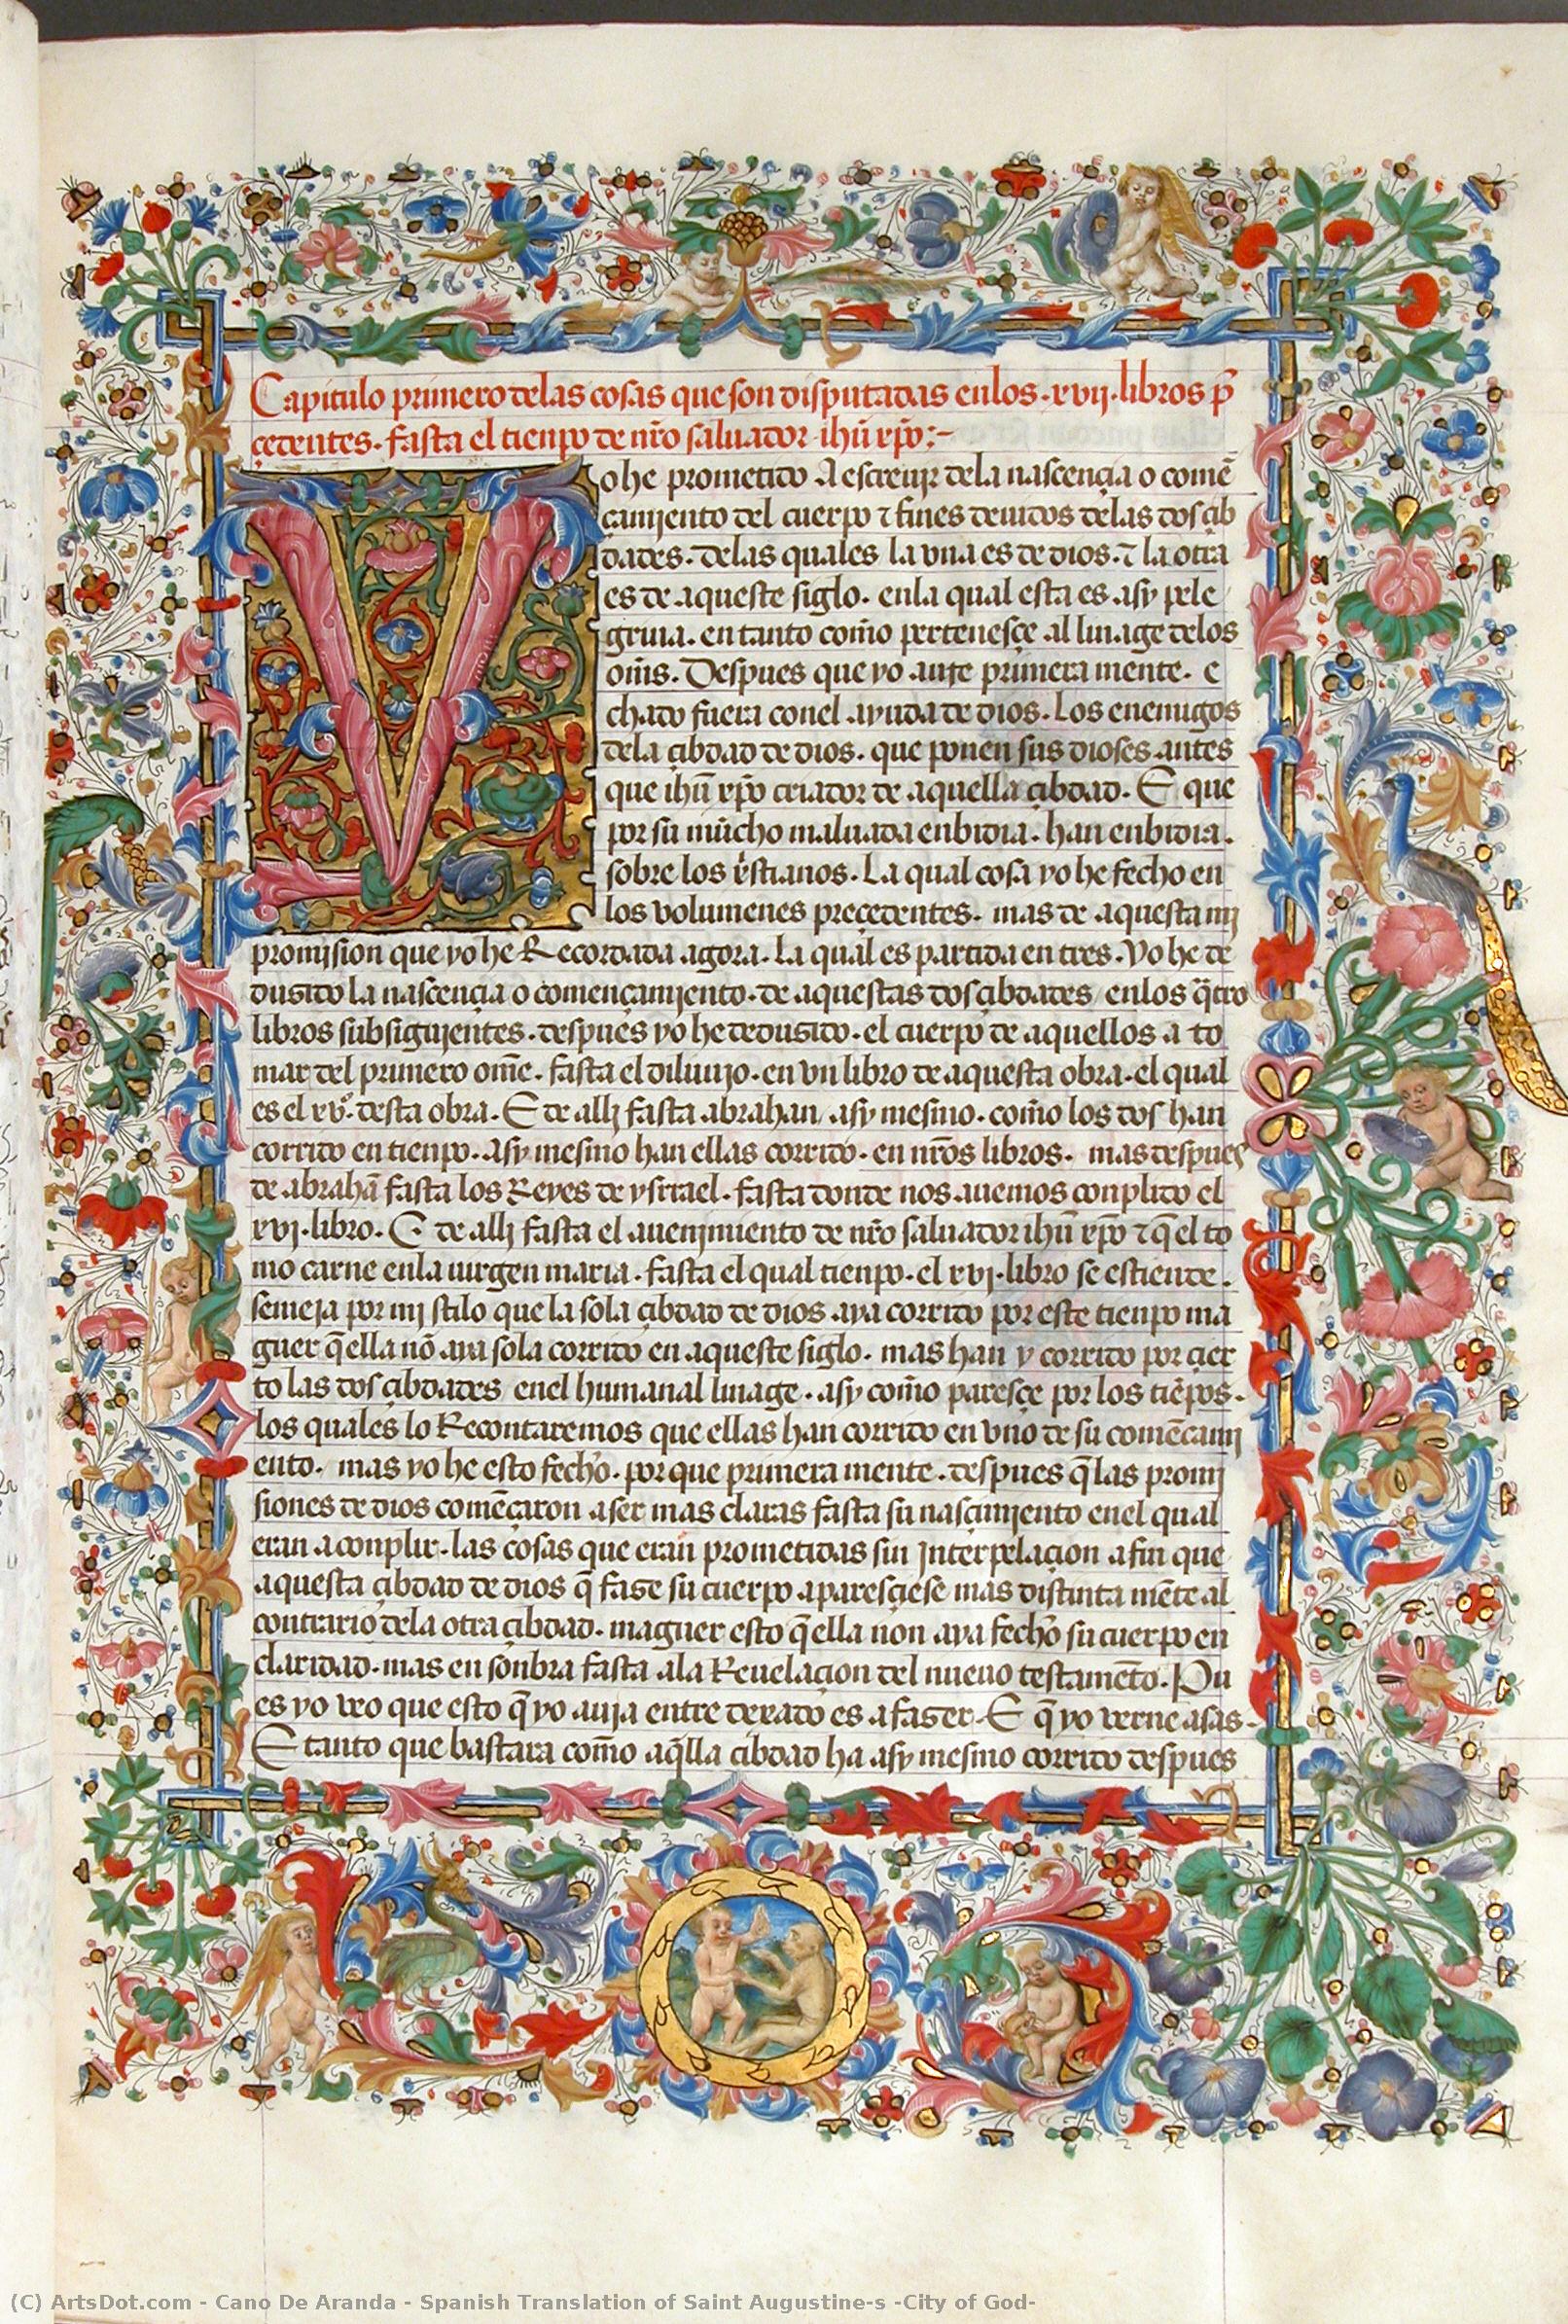 Capitulo primero delas cosas que son disputadas enlos .xvij. libros p̃
çedentes. fasta el tienpo de nr̃o saluador ihũ xp̃o:~
Vo he prometido A escreujr dela nasçençia o comẽ
çamjento del cuerpo ⁊ fines deuidos delas dos çib
dades. delas quales la vna es de dios. ⁊ la otra
es de aqueste siglo. enla qual esta es asy pele
grina. en tanto com̃o pertenesçe al linage delos
om̃s. Despues que yo aure primera mente. e
chado fuera conel ayuda de dios. Los enemigos
dela çibdad de dios. que ponen sus dioses antes
que ihũ xp̃o criador de aquella çibdad. E que
por su mũcho maluada enbidia. han enbidia.
sobre los xr̃stianos. La qual cosa yo he fecho en
los volumenes preçedentes. mas de aquesta mj
promjsion que yo he Recordada agora. la qual es partida en tres. Yo he de
dusido la nasçençia o començamjento. de aquestas dos çibdades enlos q̃tro
libros subsigujentes. despues yo he dedusido. el cuerpo de aquellos a to
mar del primero om̃e. fasta el diluujo. en vn libro de aquesta obra. el qual
es el xvº. desta obra. E de allj fasta abrahan asy mesmo. com̃o los dos han
corrido en tienpo. asy mesmo han ellas corrido. en nr̃os libros. mas despues
de abrahã fasta los Reyes de ysrrael. fasta donde nos auemos conplido el
xvj. libro. E de allj fasta el auenjmiento de nr̃o saluador ihũ xp̃o ⁊ q̃ el to
mo carne enla uirgen maria. fasta el qual tienpo. el xvj. libro se estiende.
semeja por mj stilo que la sola çibdad de dios aya corrido por este tienpo ma
guer q̃ ella nõ aya sola corrido en aqueste siglo. mas han y corrido por çier
to las dos çibdades enel humanal linage. asy com̃o paresçe por los tiẽpos.
los quales lo Recontaremos que ellas han corrido en vno de su comẽçamj
ento. mas yo he esto fecho. por que primera mente. despues q̃ las promj
siones de dios comẽçaron a ser mas claras fasta su nasçimjento enel qual
eran a conplir. las cosas que eran prometidas sin jnterpelaçion a fin que
aquesta çibdad de dios q̃ fase su cuerpo aparesçiese mas distinta mẽte al
contrario dela otra çibdad. maguer esto q̃ ella non aya fecho su cuerpo en
claridad. mas en sonbra fasta ala Reuelaçion del nueuo testamẽto. Pu
es yo veo que esto q̃ yo auja entre dexado es a faser. E q̃ yo verne asas.
E tanto que bastara com̃o aq̃lla cibdad ha asy mesmo corrido despues
(C) ArtsDot.com - Cano De Aranda - Spanish Translation of Saint Augustine-s -City of God-